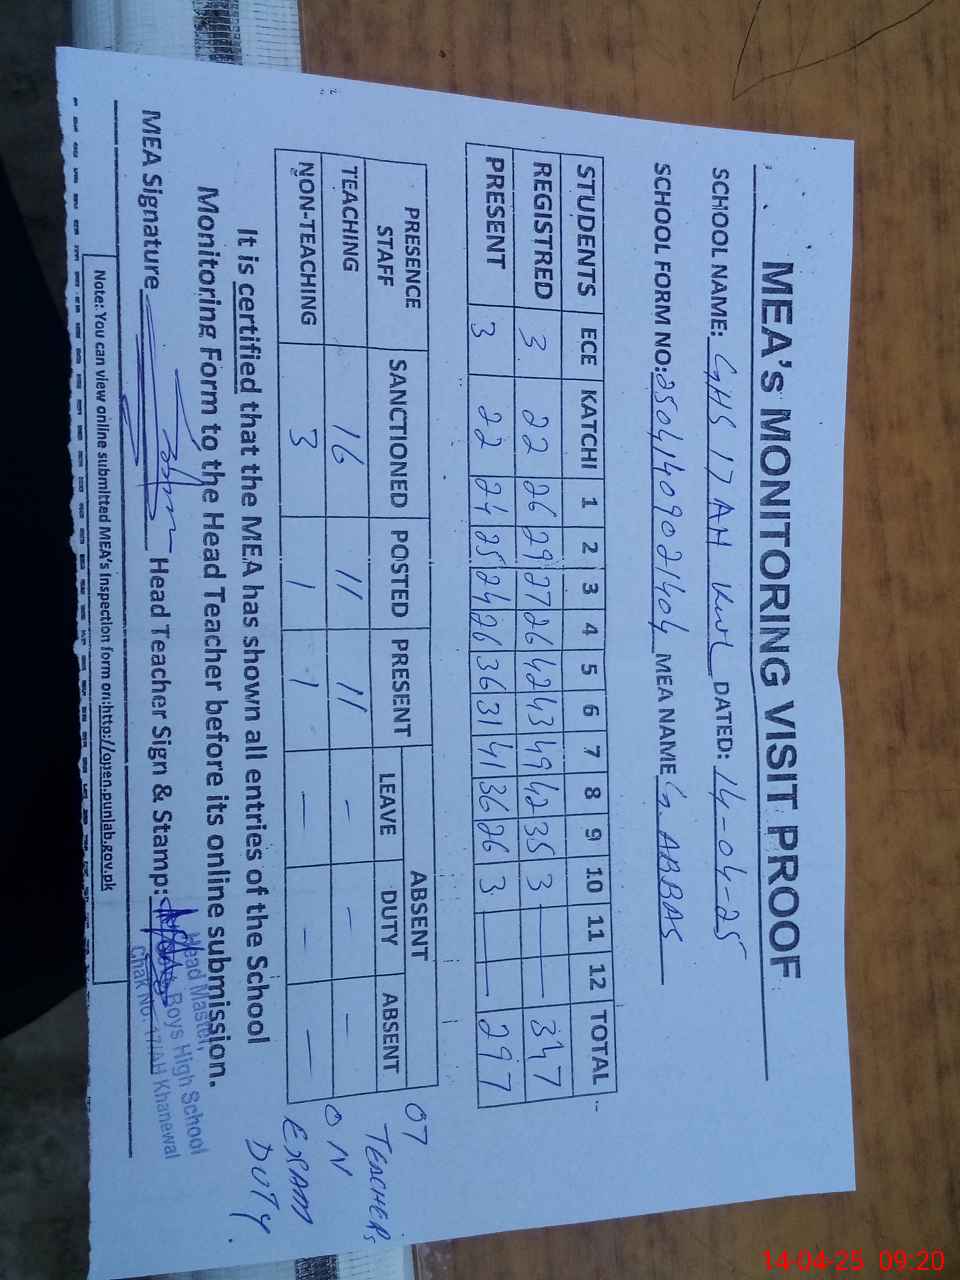 MEA's MONITORING VISIT PROOF
SCHOOL NAME: GHS 17 AH Kwl DATED: 14-04-25
SCHOOL FORM NO: 25041409021404 MEA NAME G. ABBAS
STUDENTS ECE KATCHI 1 2 3 4 5 6 7 8 9 10 11 12 TOTAL
REGISTRED 3 22 26 29 27 26 42 43 49 42 35 3 — — 347
PRESENT 3 22 24 25 24 26 36 31 41 36 26 3 — — 297
PRESENCE STAFF SANCTIONED POSTED PRESENT ABSENT
LEAVE DUTY ABSENT
TEACHING 16 11 11 - - -
NON-TEACHING 3 1 1 - - -
07 TEACHERS
ON
EXAM
DUTY
It is certified that the MEA has shown all entries of the School
Monitoring Form to the Head Teacher before its online submission.
MEA Signature Head Teacher Sign & Stamp:
Head Master,
Boys High School
Chak No. 17/AH Khanewal
Note: You can view online submitted MEA's inspection form on:http://open.punjab.gov.pk
14-04-25 09:20